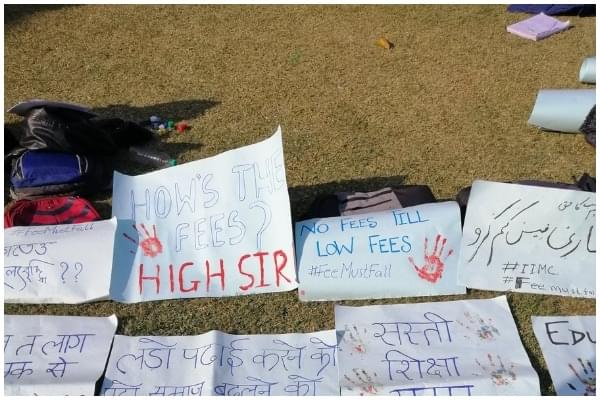 #FeeMustFall
??
HOW'S THE
FEES?
HIGH SIR
NO FEES TILL
LOW FEES
#FeeMustFall
ہماری فیس کم کرو
#IIMC
#FeeMustFall
त लाग
क से
लडो पढाई करने को
समाज बदलने को
सस्ती
शिक्षा
EDU